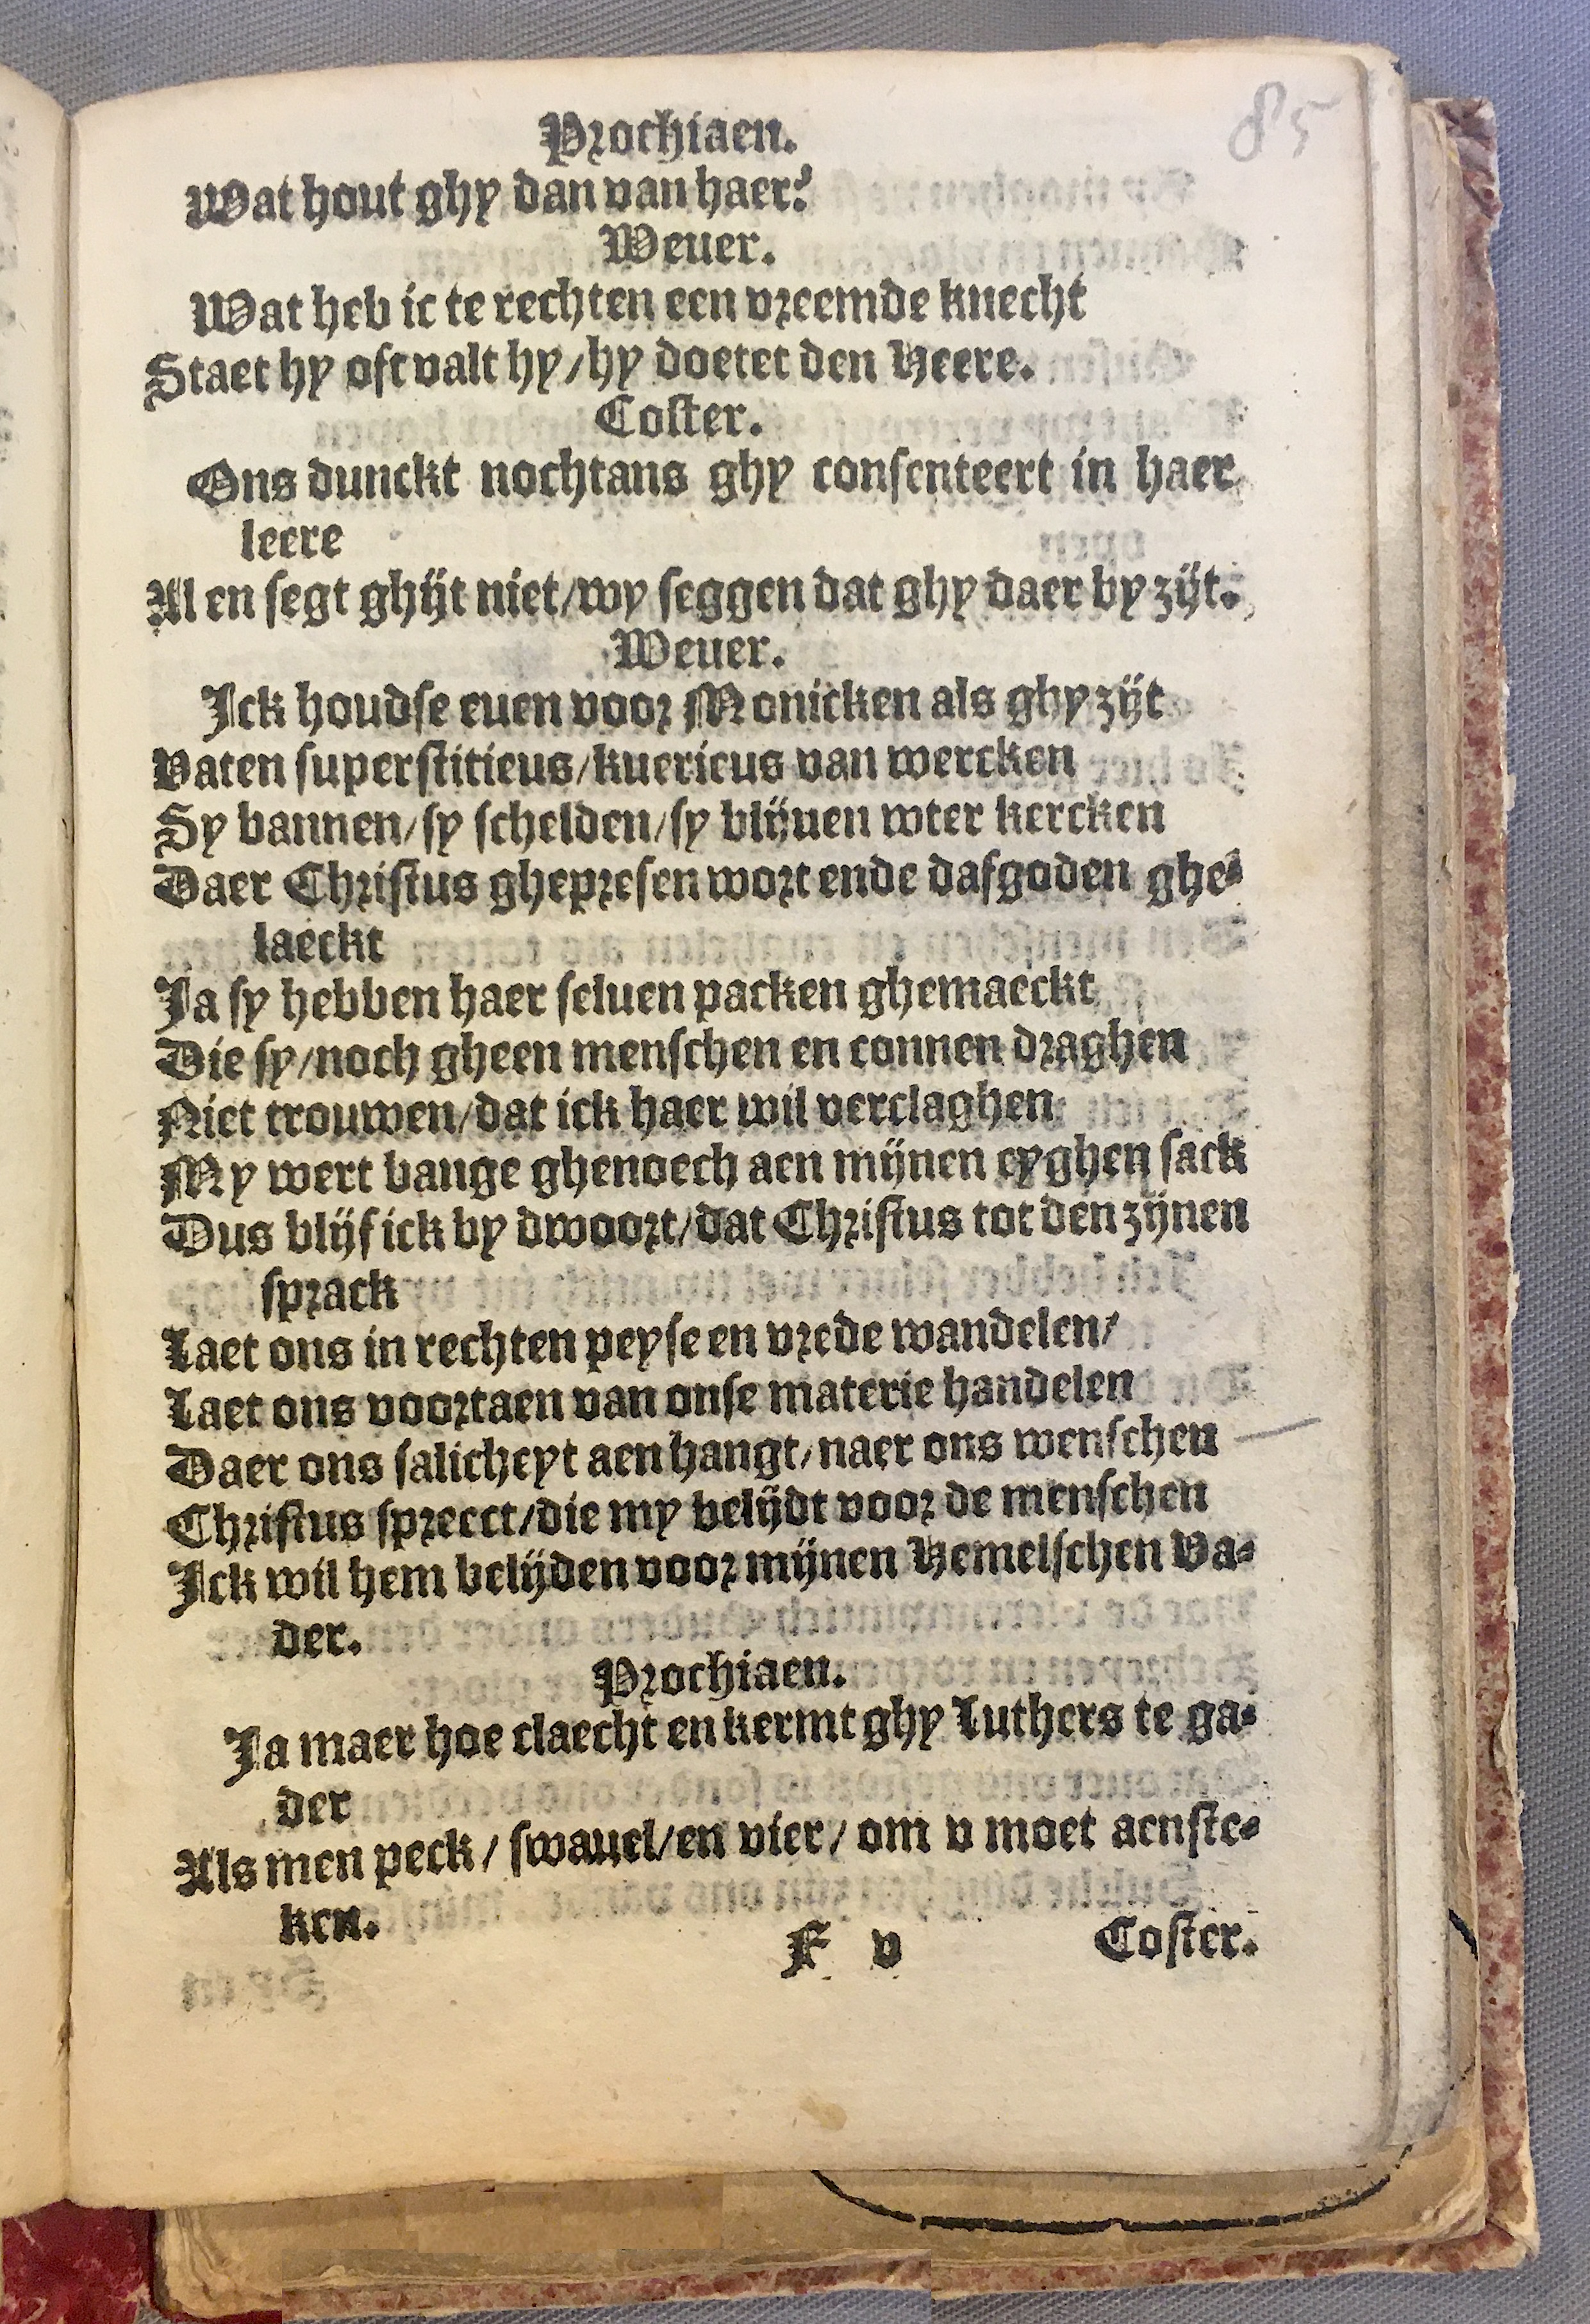 85
Prochiaen.
Wat hout ghy dan van haer?
Weuer.
Wat heb ic te rechten een vreemde knecht
Staet hy oft valt hy/hy doetet den Heere.
Coster.
Ons dunckt nochtans ghy consenteert in haer
leere
Al en segt ghijt niet/wy seggen dat ghy daer by zijt.
Weuer.
Ick houdse euen voor Monicken als ghy zijt
Vaten superstitieus/kuerieus van wercken
Sy bannen/sy schelden/sy blijuen wter kercken
Daer Christus ghepresen wort ende dafgoden ghe-
laeckt
Ja sy hebben haer seluen packen ghemaeckt
Die sy/noch gheen menschen en connen draghen
Niet trouwen/dat ick haer wil verclaghen
My wert bange ghenoech aen mijnen eyghen sack
Dus blijf ick by dwoort/dat Christus tot den zijnen
sprack
Laet ons in rechten peyse en vrede wandelen/
Laet ons voortaen van onse materie handelen
Daer ons salicheyt aen hangt/naer ons wenschen
Christus spreect/die my belijdt voor de menschen
Ick wil hem belijden voor mijnen Hemelschen Va-
der.
Prochiaen.
Ja maer hoe claecht en kermt ghy Luthers te ga-
der
Als men peck/ swauel/en vier/ om v moet aenste-
ken.
F v Coster.